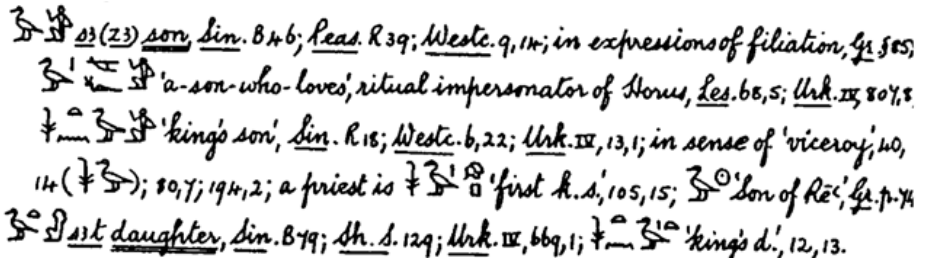 𓅭𓀀 s3 (z3) son, Sin. B 46; Peas. R 39; Westc. 9, 14; in expressions of filiation, Gr. §85;
𓅭𓏤 𓀀 'a-son-who-loves', ritual impersonator of Horus, Les. 68, 5; Urk. IV, 807, 8
𓇓𓏏𓈖𓅭𓀀 'king's son', Sin. R 18; Westc. 6, 22; Urk. IV, 13, 1; in sense of 'viceroy', 40,
14 (𓇓𓅭); 80, 7; 194, 2; a priest is 𓇓𓅭𓏤 'first k. s.', 105, 15; 𓅭𓇳 'Son of Rēꜥ', Gr. p. 74
𓅭𓏏𓁐 s3t daughter, Sin. B 79; Sh. S. 129; Urk. IV, 669, 1; 𓇓𓏏𓈖𓅭𓏏𓏤 'king's d.', 12, 13.